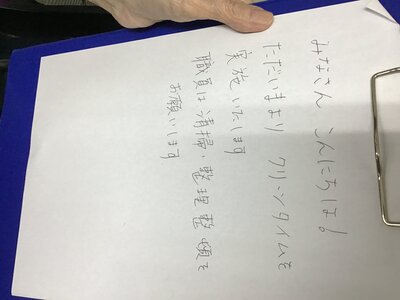 みなさん こんにちは!
ただいまより クリンタイムを
実施いたします
職員は、清掃・整理整頓を
お願いします